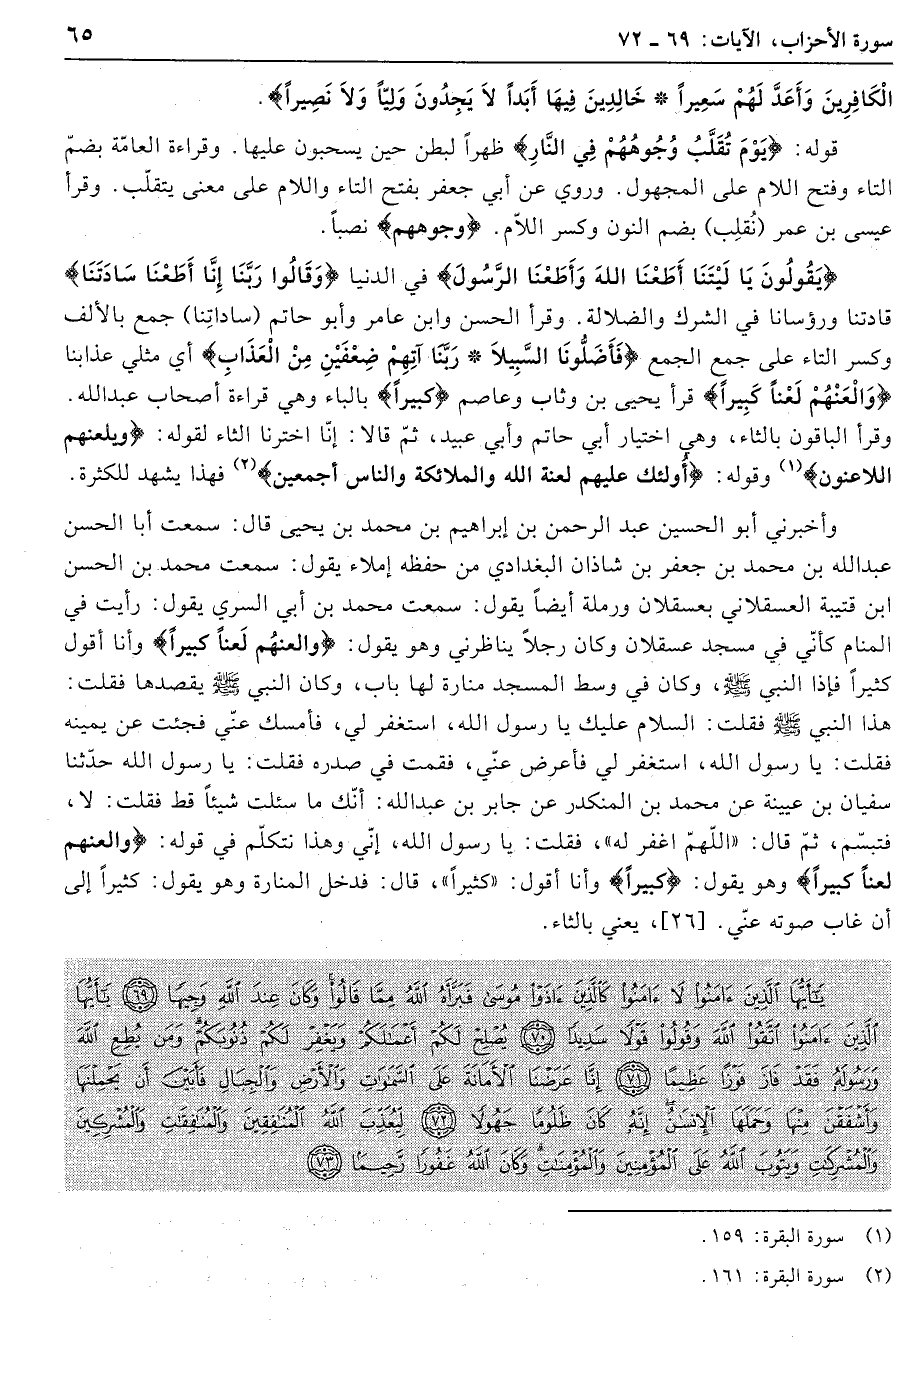 سورة الأحزاب، الآيات: ٦٩ ـ ٧٢
٦٥
الْكَافِرِينَ وَأَعَدَّ لَهُمْ سَعِيراً * خَالِدِينَ فِيهَا أَبَداً لاَ يَجِدُونَ وَلِيّاً وَلاَ نَصِيراً﴾.
قوله: ﴿يَوْمَ تُقَلَّبُ وُجُوهُهُمْ فِي النَّارِ﴾ ظهراً لبطن حين يسحبون عليها. وقراءة العامّة بضمّ
التاء وفتح اللام على المجهول. وروي عن أبي جعفر بفتح التاء واللام على معنى يتقلّب. وقرأ
عيسى بن عمر (نُقلِب) بضم النون وكسر اللاّم. ﴿وجوههم﴾ نصباً.
﴿يَقُولُونَ يَا لَيْتَنَا أَطَعْنَا اللهَ وَأَطَعْنَا الرَّسُولَ﴾ في الدنيا ﴿وَقَالُوا رَبَّنَا إِنَّا أَطَعْنَا سَادَتَنَا﴾
قادتنا ورؤسانا في الشرك والضلالة. وقرأ الحسن وابن عامر وأبو حاتم (ساداتِنا) جمع بالألف
وكسر التاء على جمع الجمع ﴿فَأَضَلُّونَا السَّبِيلاَ * رَبَّنَا آتِهِمْ ضِعْفَيْنِ مِنْ الْعَذَابِ﴾ أي مثلي عذابنا
﴿وَالْعَنْهُمْ لَعْناً كَبِيراً﴾ قرأ يحيى بن وثاب وعاصم ﴿كبيراً﴾ بالباء وهي قراءة أصحاب عبدالله.
وقرأ الباقون بالثاء، وهي اختيار أبي حاتم وأبي عبيد، ثمّ قالا: إنّا اخترنا الثاء لقوله: ﴿ويلعنهم
اللاعنون﴾(١) وقوله: ﴿أُولئك عليهم لعنة الله والملائكة والناس أجمعين﴾(٢) فهذا يشهد للكثرة.
وأخبرني أبو الحسين عبد الرحمن بن إبراهيم بن محمد بن يحيى قال: سمعت أبا الحسن
عبدالله بن محمد بن جعفر بن شاذان البغدادي من حفظه إملاء يقول: سمعت محمد بن الحسن
ابن قتيبة العسقلاني بعسقلان ورملة أيضاً يقول: سمعت محمد بن أبي السري يقول: رأيت في
المنام كأنّي في مسجد عسقلان وكان رجلاً يناظرني وهو يقول: ﴿والعنهُم لَعناً كبيراً﴾ وأنا أقول
كثيراً فإذا النبي ﷺ، وكان في وسط المسجد منارة لها باب، وكان النبي ﷺ يقصدها فقلت:
هذا النبي ﷺ فقلت: السلام عليك يا رسول الله، استغفر لي، فأمسك عنّي فجئت عن يمينه
فقلت: يا رسول الله، استغفر لي فأعرض عنّي، فقمت في صدره فقلت: يا رسول الله حدّثنا
سفيان بن عيينة عن محمد بن المنكدر عن جابر بن عبدالله: أنّك ما سئلت شيئاً قط فقلت: لا،
فتبسّم، ثمّ قال: «اللّهمّ اغفر له»، فقلت: يا رسول الله، إنّي وهذا نتكلّم في قوله: ﴿والعنهم
لعناً كبيراً﴾ وهو يقول: ﴿كبيراً﴾ وأنا أقول: «كثيراً»، قال: فدخل المنارة وهو يقول: كثيراً إلى
أن غاب صوته عنّي. [٢٦]، يعني بالثاء.
يَٰٓأَيُّهَا ٱلَّذِينَ ءَامَنُوا۟ لَا ءَامَنُوا۟ كَٱلَّذِينَ ءَاذَوْا۟ مُوسَىٰ فَبَرَّأَهُ ٱللَّهُ مِمَّا قَالُوا۟ وَكَانَ عِندَ ٱللَّهِ وَجِيهًا ٦٩ يَٰٓأَيُّهَا
ٱلَّذِينَ ءَامَنُوا۟ ٱتَّقُوا۟ ٱللَّهَ وَقُولُوا۟ قَوْلًا سَدِيدًا ٧٠ يُصْلِحْ لَكُمْ أَعْمَٰلَكُمْ وَيَغْفِرْ لَكُمْ ذُنُوبَكُمْ وَمَن يُطِعِ ٱللَّهَ
وَرَسُولَهُۥ فَقَدْ فَازَ فَوْزًا عَظِيمًا ٧١ إِنَّا عَرَضْنَا ٱلْأَمَانَةَ عَلَى ٱلسَّمَٰوَٰتِ وَٱلْأَرْضِ وَٱلْجِبَالِ فَأَبَيْنَ أَن يَحْمِلْنَهَا
وَأَشْفَقْنَ مِنْهَا وَحَمَلَهَا ٱلْإِنسَٰنُ إِنَّهُۥ كَانَ ظَلُومًا جَهُولًا ٧٢ لِيُعَذِّبَ ٱللَّهُ ٱلْمُنَٰفِقِينَ وَٱلْمُنَٰفِقَٰتِ وَٱلْمُشْرِكِينَ
وَٱلْمُشْرِكَٰتِ وَيَتُوبَ ٱللَّهُ عَلَى ٱلْمُؤْمِنِينَ وَٱلْمُؤْمِنَٰتِ وَكَانَ ٱللَّهُ غَفُورًا رَّحِيمًا ٧٣
(١) سورة البقرة: ١٥٩.
(٢) سورة البقرة: ١٦١.